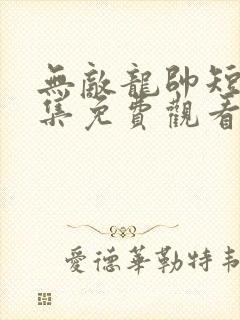 無敵龍帥短
集免費觀看
愛德華勒特韋